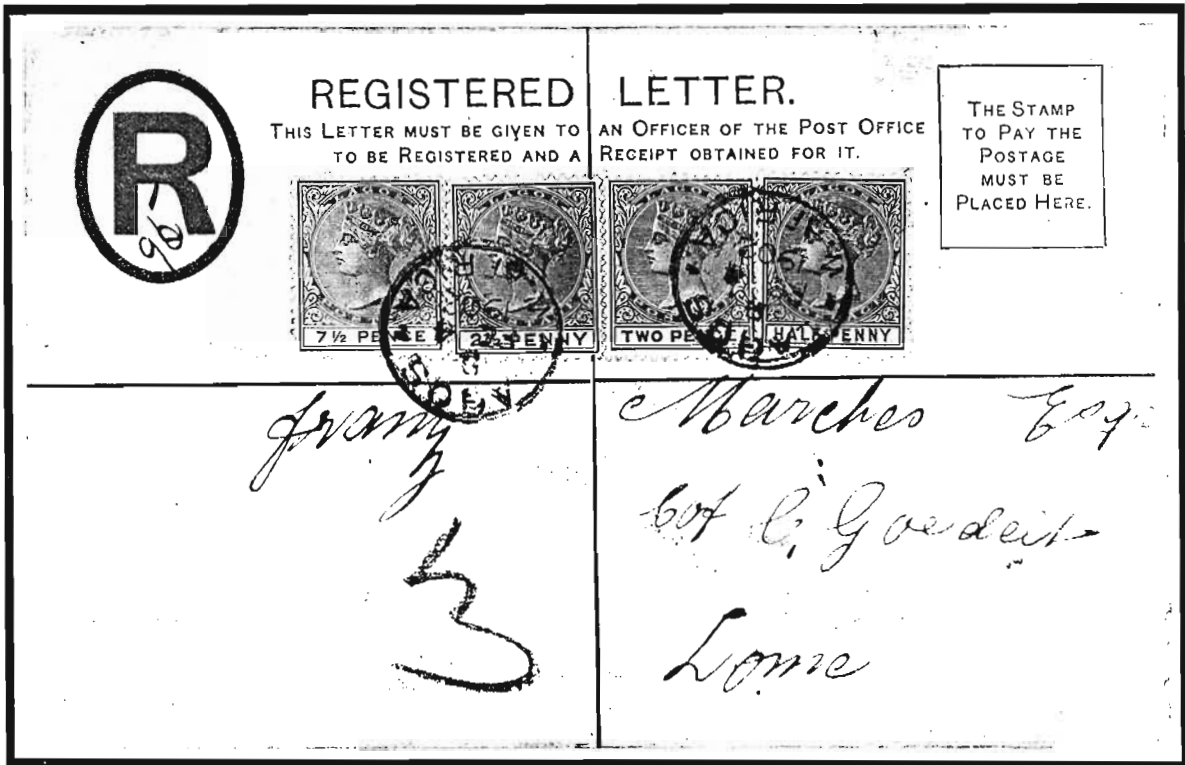 REGISTERED LETTER.
THIS LETTER MUST BE GIVEN TO AN OFFICER OF THE POST OFFICE
TO BE REGISTERED AND A RECEIPT OBTAINED FOR IT.
THE STAMP
TO PAY THE
POSTAGE
MUST BE
PLACED HERE.
R
7½ PENCE
2½ PENNY
TWO PENCE
HALF PENNY
LAGOS
LAGOS
Franz Marches Esq.
C. Goedelt
Lome
3